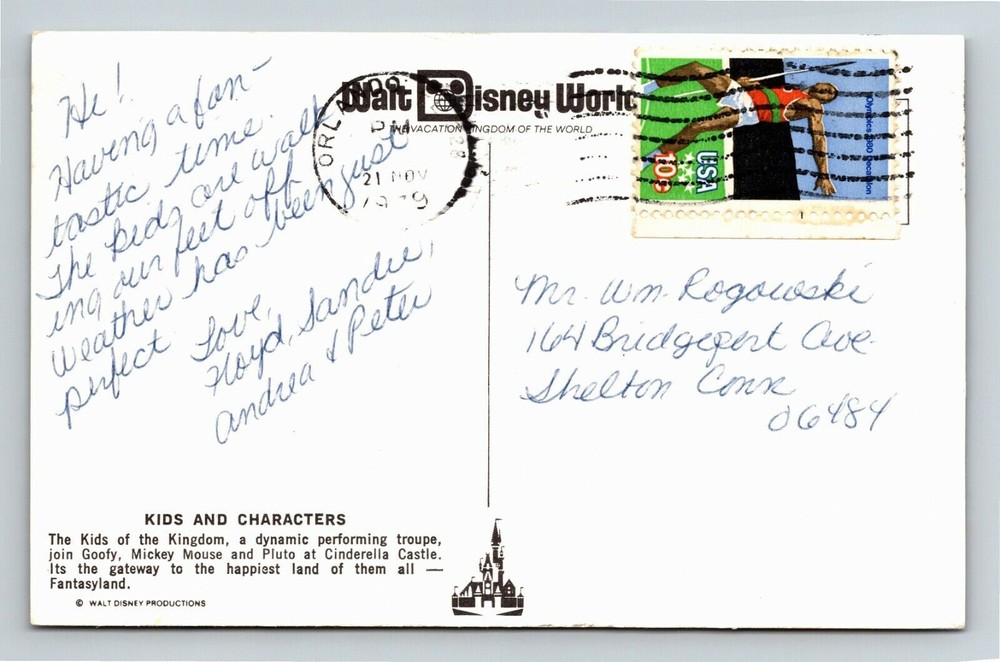 Hi!
Having a fan-
tastic time.
The kids are walk
ing our feet off
weather has been just
perfect
Love,
Floyd, Sandie,
Andrea & Peter
Walt Disney World
THE VACATION KINGDOM OF THE WORLD
ORLANDO
PM
21 NOV
1979
USA
10c
Olympics 1980 Decathlon
Mr. Wm. Rogowski
164 Bridgeport Ave.
Shelton Conn
06484
KIDS AND CHARACTERS
The Kids of the Kingdom, a dynamic performing troupe,
join Goofy, Mickey Mouse and Pluto at Cinderella Castle.
Its the gateway to the happiest land of them all —
Fantasyland.
© WALT DISNEY PRODUCTIONS